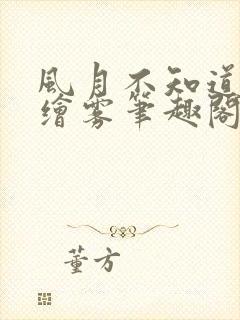 風月不知道
繪雾筆趣閣
董方